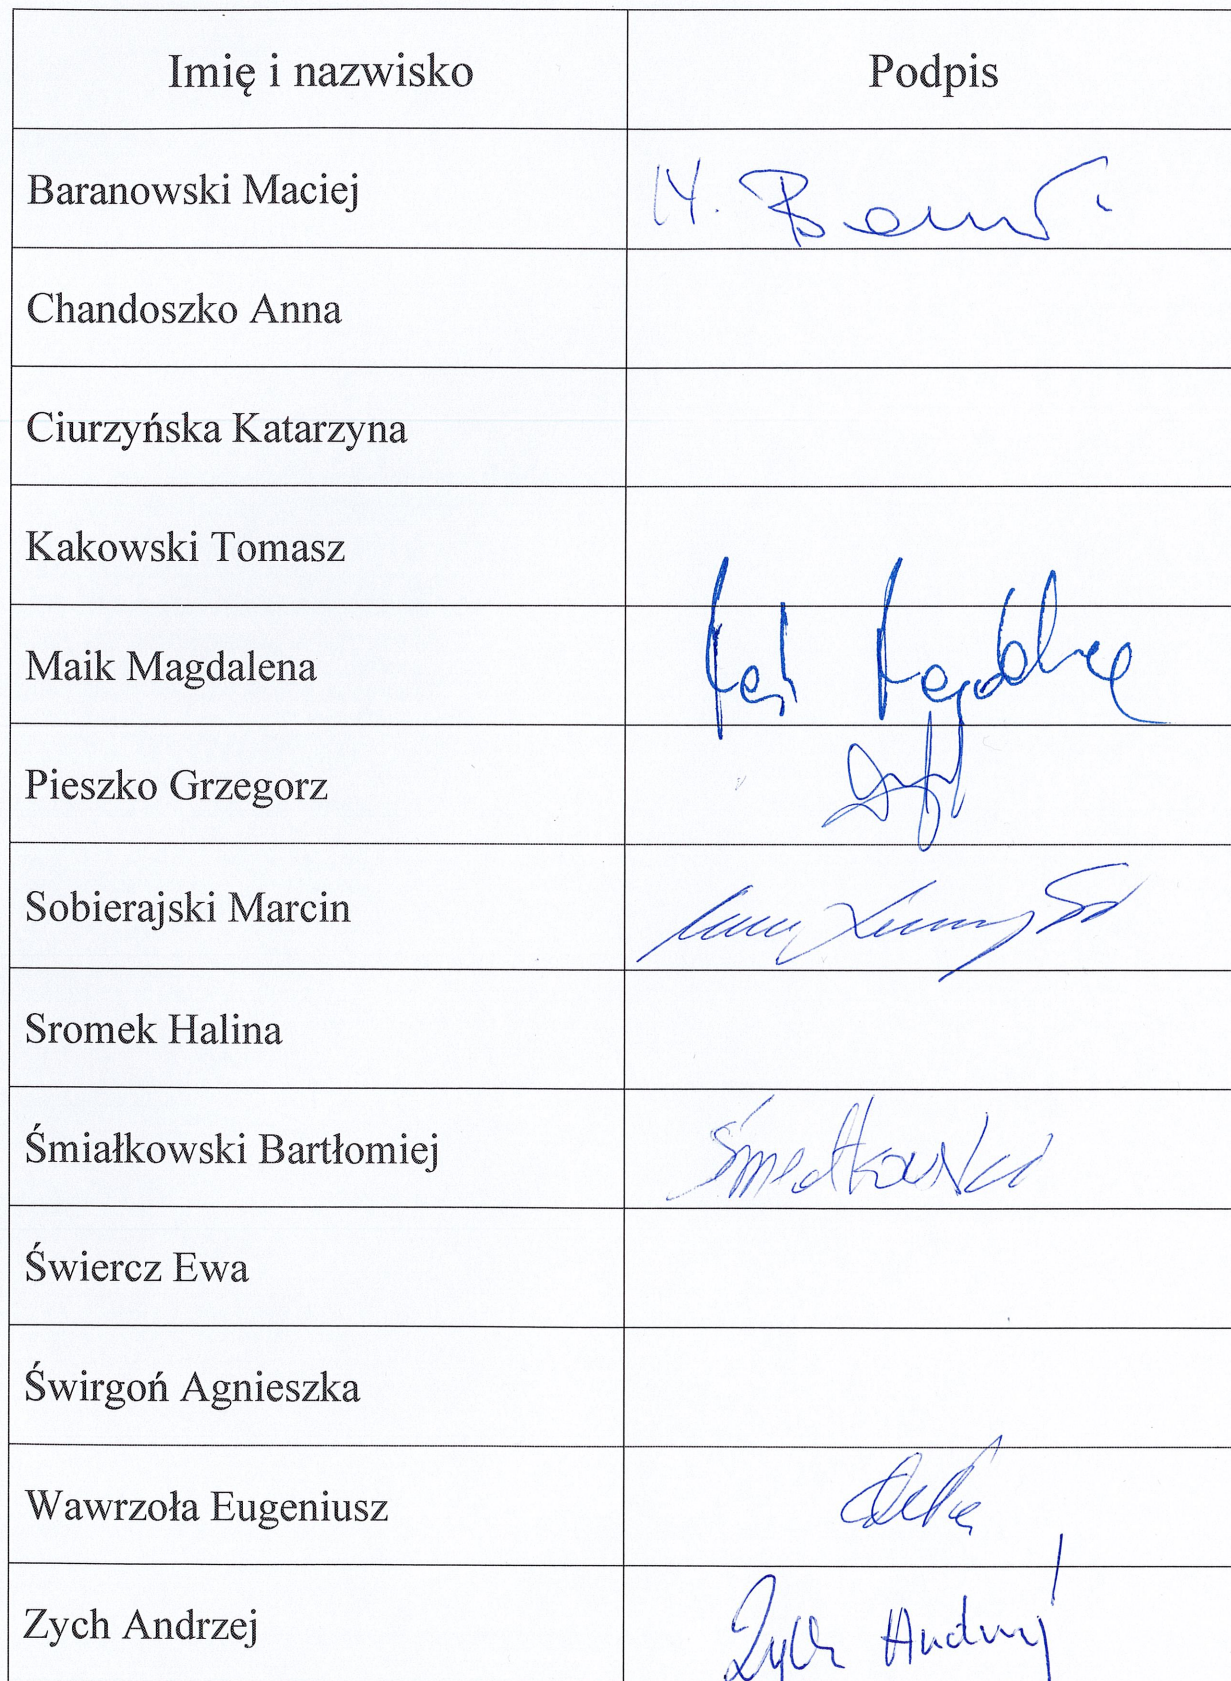 Imię i nazwisko Podpis
Baranowski Maciej M.
Chandoszko Anna
Ciurzyńska Katarzyna
Kakowski Tomasz
Maik Magdalena Maik Magdalena
Pieszko Grzegorz
Sobierajski Marcin
Sromek Halina
Śmiałkowski Bartłomiej Śmiałkowski
Świercz Ewa
Świrgoń Agnieszka
Wawrzoła Eugeniusz
Zych Andrzej Zych Andrzej